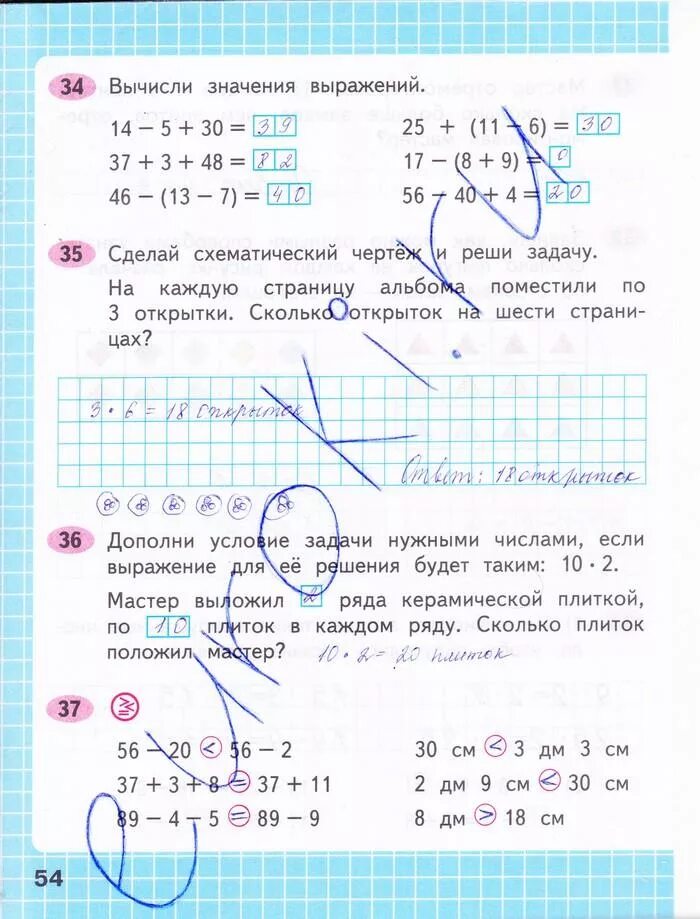 34 Вычисли значения выражений.
14 − 5 + 30 = 39
25 + (11 − 6) = 30
37 + 3 + 48 = 82
17 − (8 + 9) = 0
46 − (13 − 7) = 40
56 − 40 + 4 = 20
35 Сделай схематический чертёж и реши задачу.
На каждую страницу альбома поместили по
3 открытки. Сколько открыток на шести страни-
цах?
3 · 6 = 18 открыток
Ответ: 18 открыток
36 Дополни условие задачи нужными числами, если
выражение для её решения будет таким: 10 · 2.
Мастер выложил 2 ряда керамической плиткой,
по 10 плиток в каждом ряду. Сколько плиток
положил мастер? 10 · 2 = 20 плиток
37
56 − 20 < 56 − 2
30 см < 3 дм 3 см
37 + 3 + 8 = 37 + 11
2 дм 9 см < 30 см
89 − 4 − 5 = 89 − 9
8 дм > 18 см
54